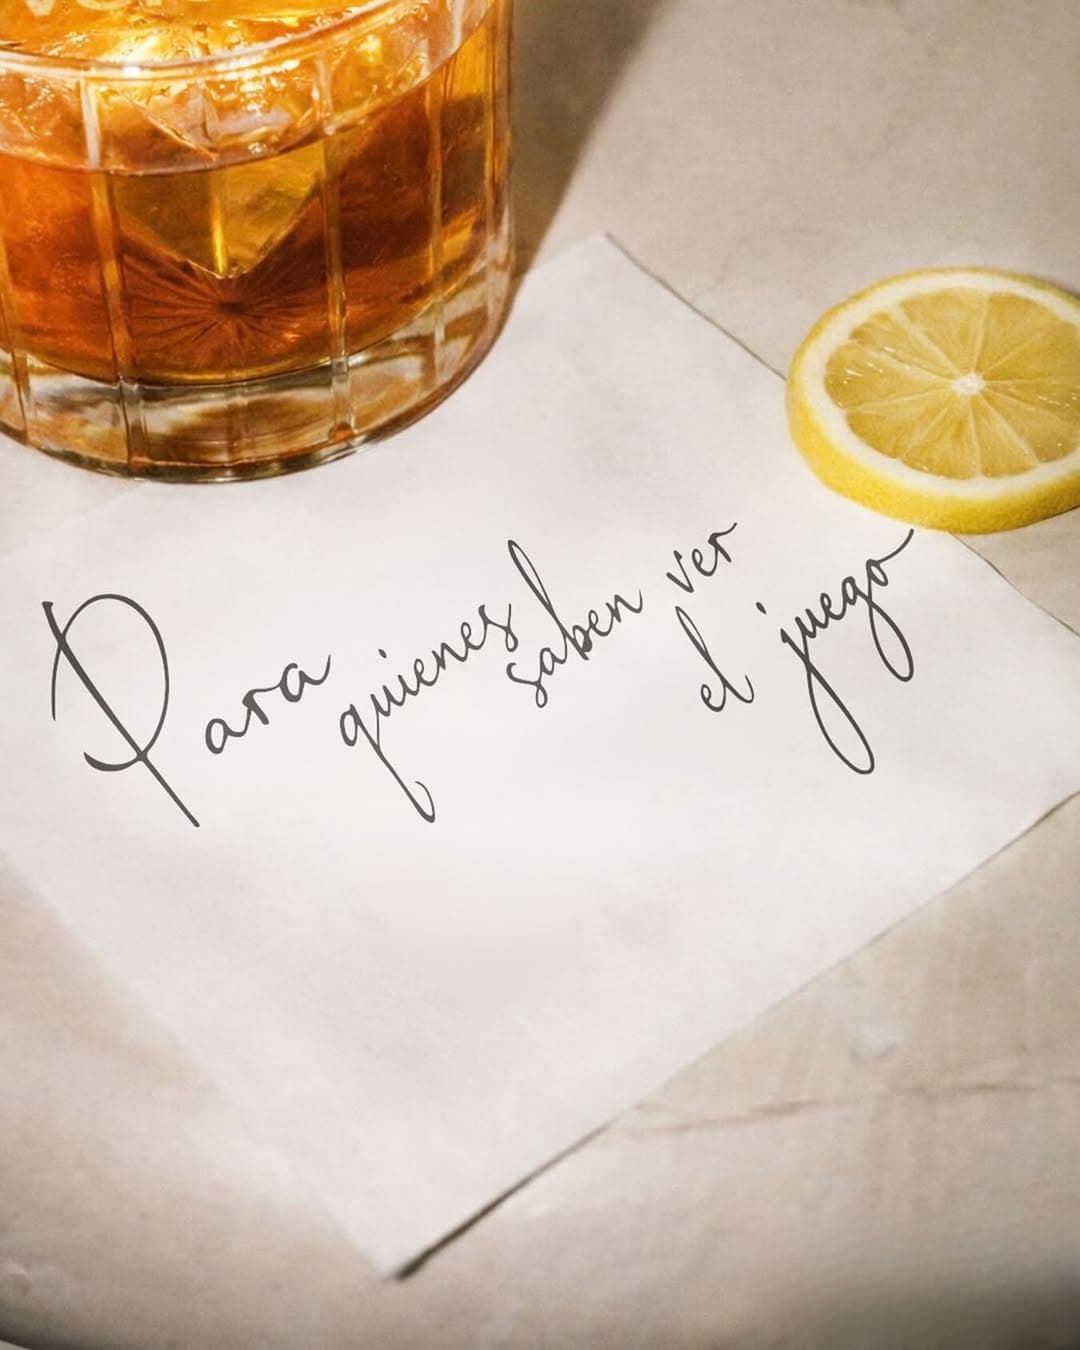 Para quienes saben ver el juego